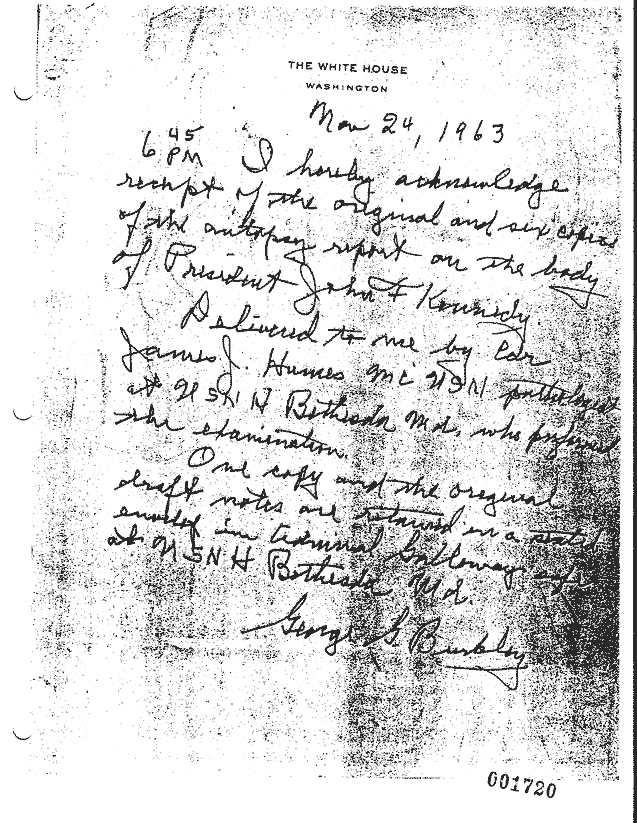 THE WHITE HOUSE
WASHINGTON
Nov 24, 1963
6 45 PM I hereby acknowledge
receipt of the original and six copies
of the autopsy report on the body
of President John F Kennedy.
Delivered to me by Cdr
James J. Humes MC USN pathologist
at USNH Bethesda Md. who performed
the examination.
One copy and the original
draft notes are retained in a sealed
envelop in Admiral Galloways safe
at USNH Bethesda Md.
George G Burkley
001720